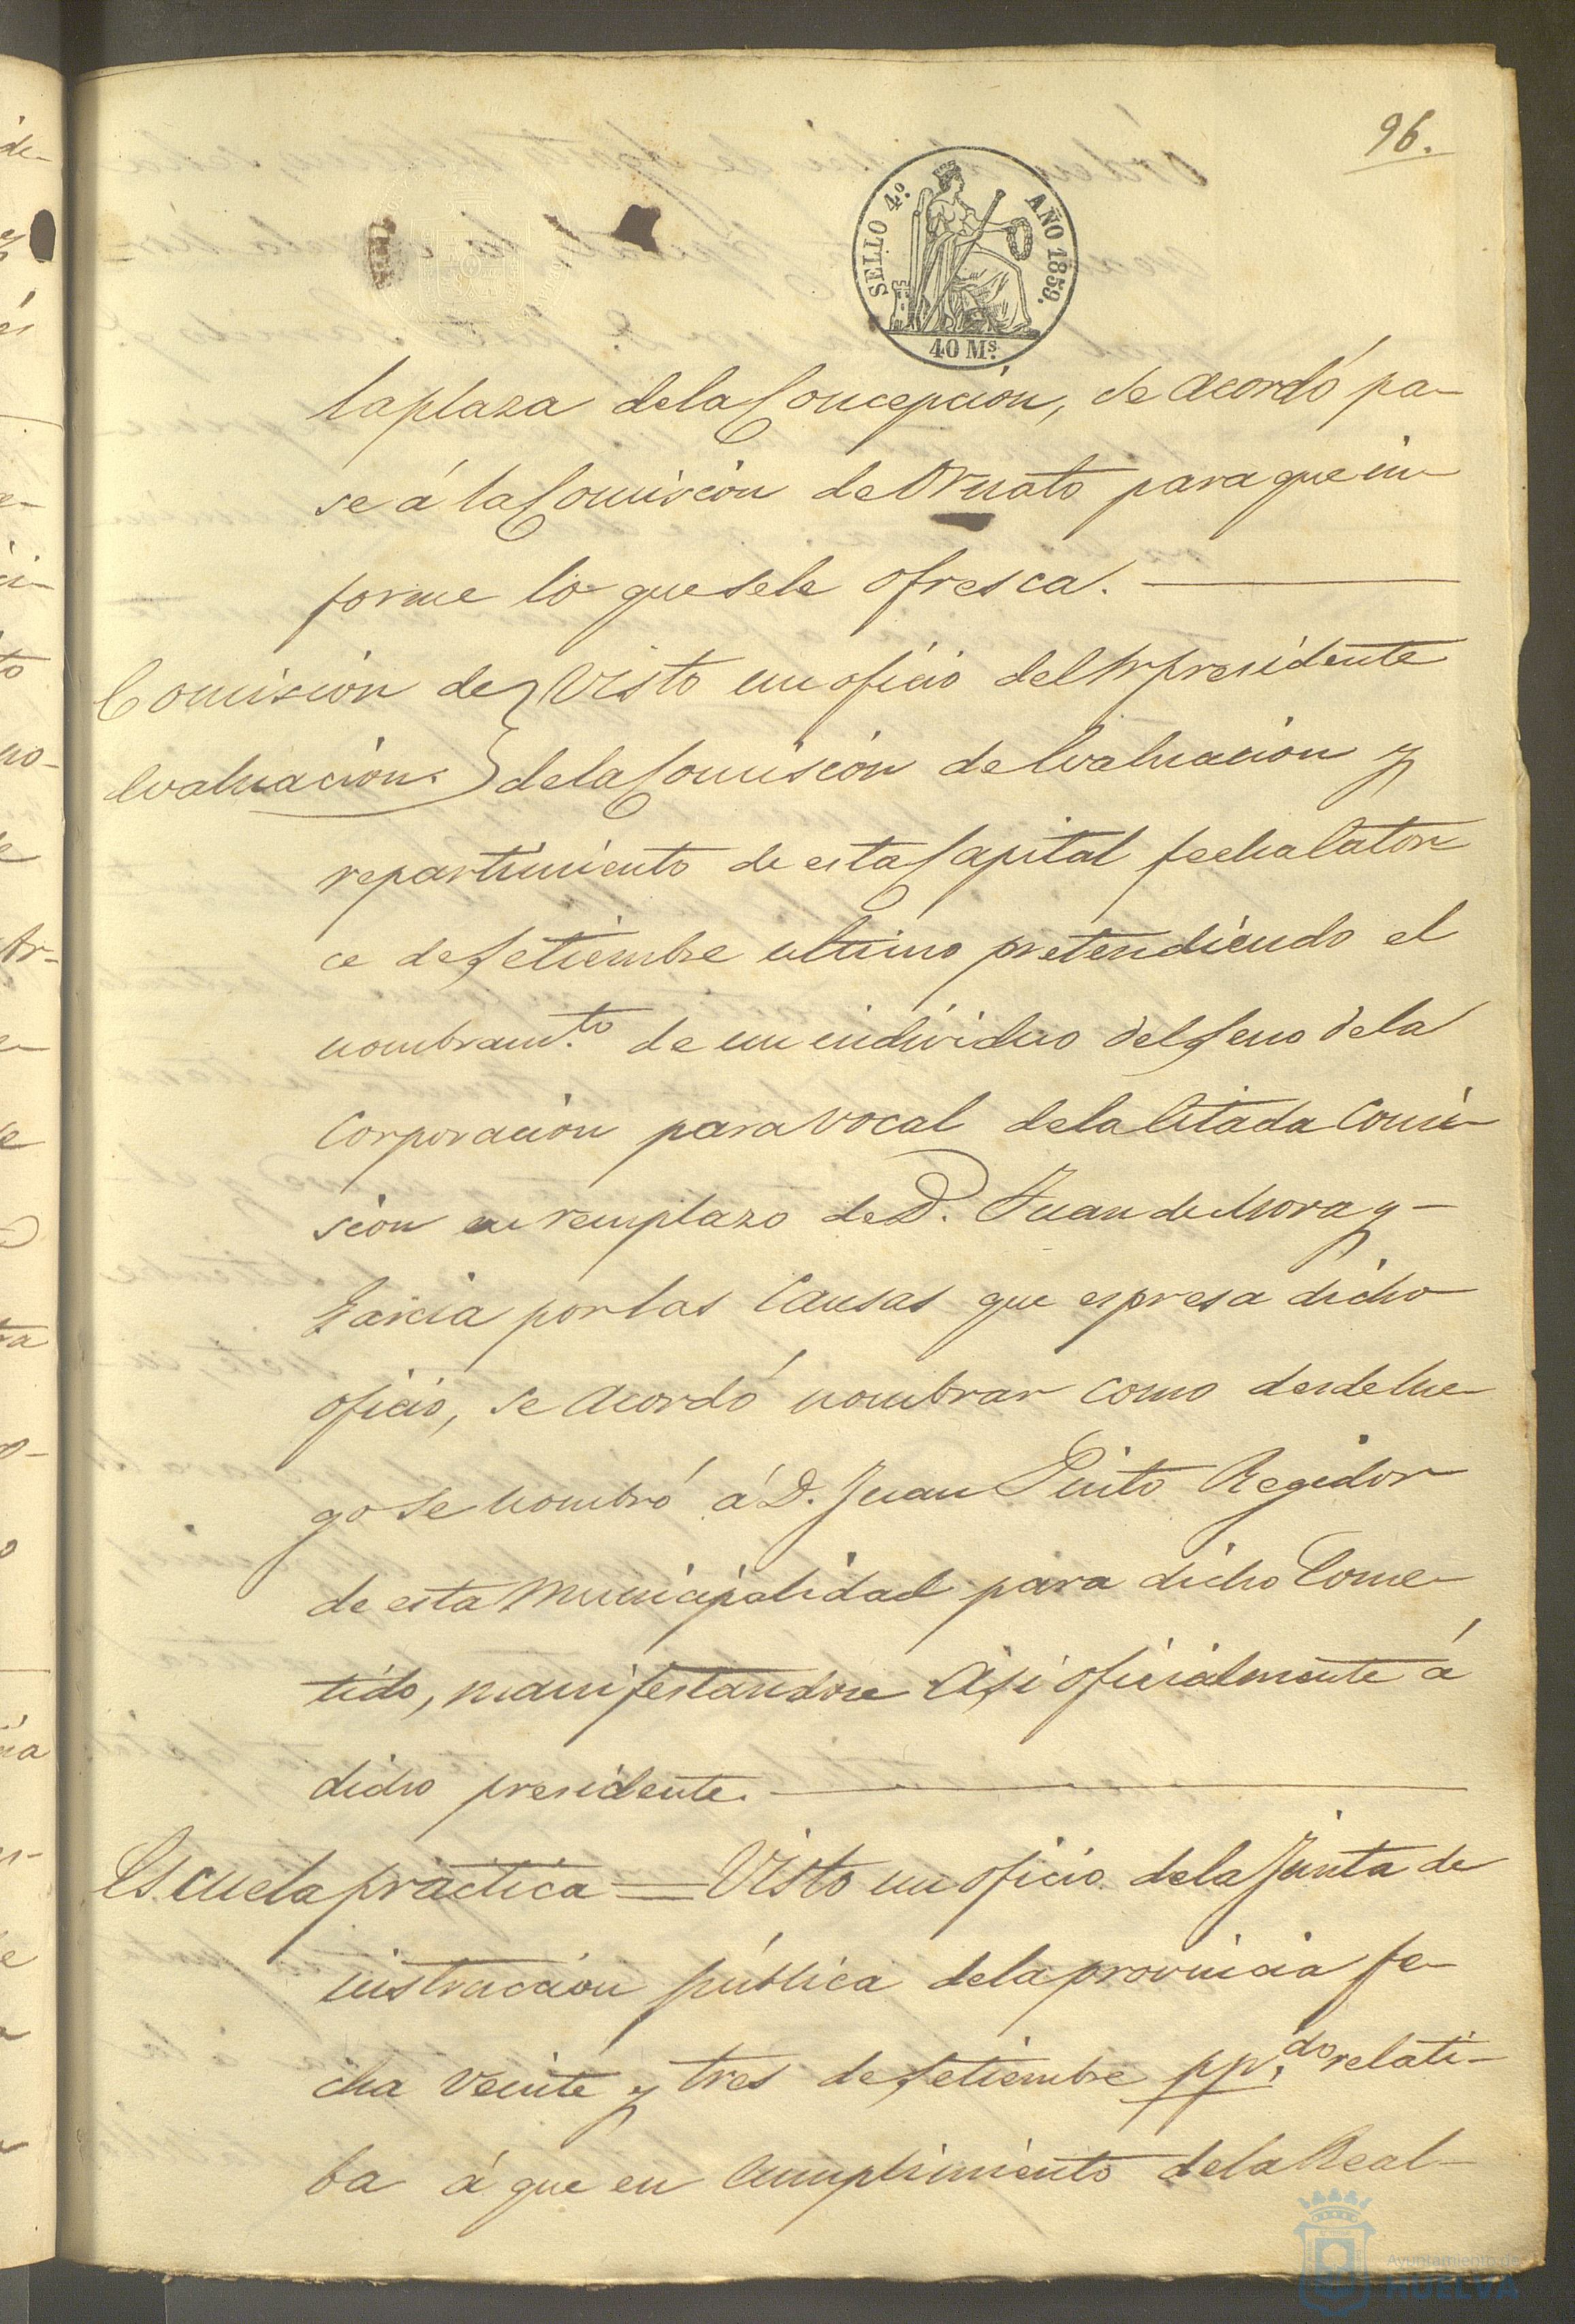 96.
SELLO 4.º AÑO 1859.
40 Ms.
la plaza de la Concepción, se acordó pa-
se á la Comisión de Ornato para que in-
forme lo que sele ofresca.
Comisión de Visto un oficio del Sr presidente
Evaluación. de la Comisión de Evaluación y
repartimiento de esta Capital fecha Cator-
ce de Setiembre ultimo pretendiendo el
nombram.to de un individuo del Seno dela
Corporación para vocal dela Citada Comi-
sión en remplazo de D. Juan de Mora y
García por las Causas que espresa dicho
oficio, se acordó nombrar como desde lue-
go se nombró á D. Juan Pinto Regidor
de esta Municipalidad para dicho Come-
tido, manifestandose Asi oficialmente á
dicho presidente.
Escuela práctica = Visto un oficio dela Junta de
instrucción pública dela provincia fe-
cha veinte y tres de Setiembre pp.do relati-
ba á que en Cumplimiento dela Real
Ayuntamiento de
HUELVA